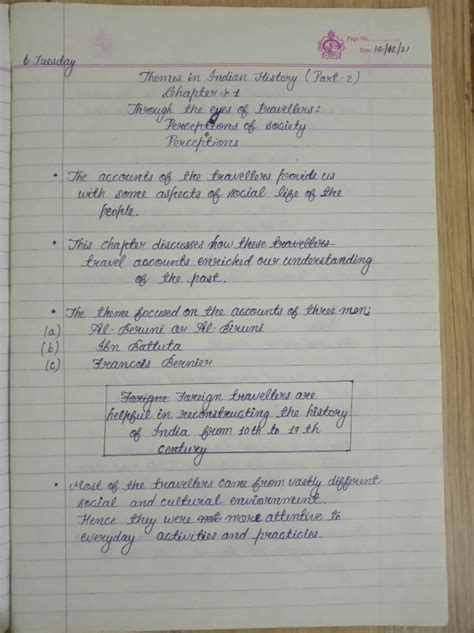 Page No.
Date 14/12/21
Tuesday
Themes in Indian History (Part-2)
Chapter → 1
Through the eyes of travellers:
Perceptions of society
Perceptions
• The accounts of the travellers provide us
with some aspects of social life of the
people.
• This chapter discusses how these travellers
travel accounts enriched our understanding
of the past.
• The theme focused on the accounts of three men:
(a) Al-Beruni or Al-Biruni
(b) Ibn Battuta
(c) Francois Bernier
Foreigne Foreign travellers are
helpful in reconstructing the history
of India from 10th to 17 th
century
• Most of the travellers came from vastly different
social and cultural enviornment.
Hence they were not more attentive to
everyday activities and practicies.